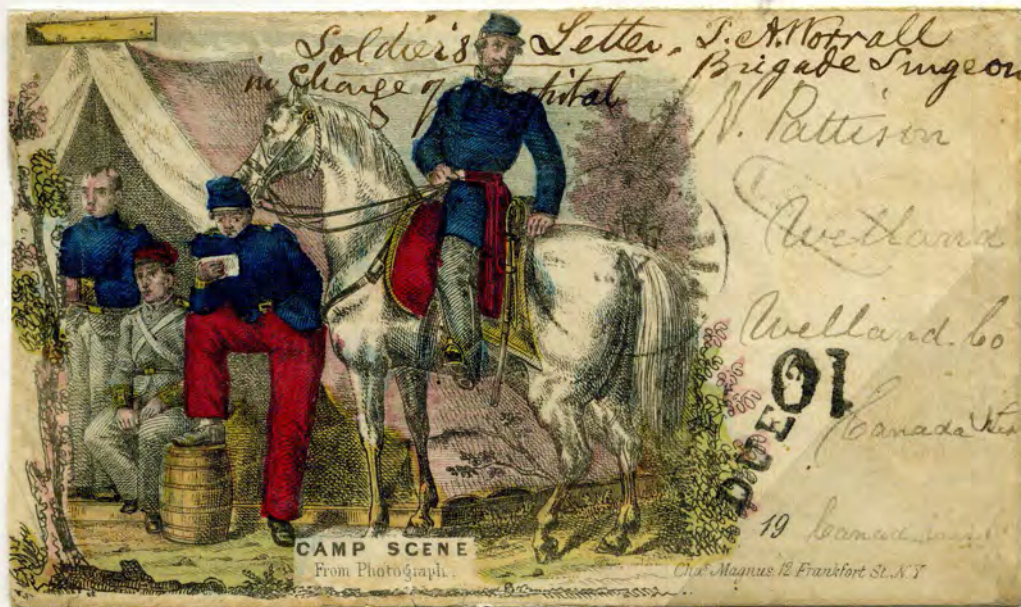 Soldier's Letter. T. A. Worrall
in Charge of Hospital Brigade Surgeon
N. Pattison
Welland
Welland. Co
Canada
DUE 10
19
CAMP SCENE
From Photograph.
Chas Magnus. 12 Frankfort St. N.Y